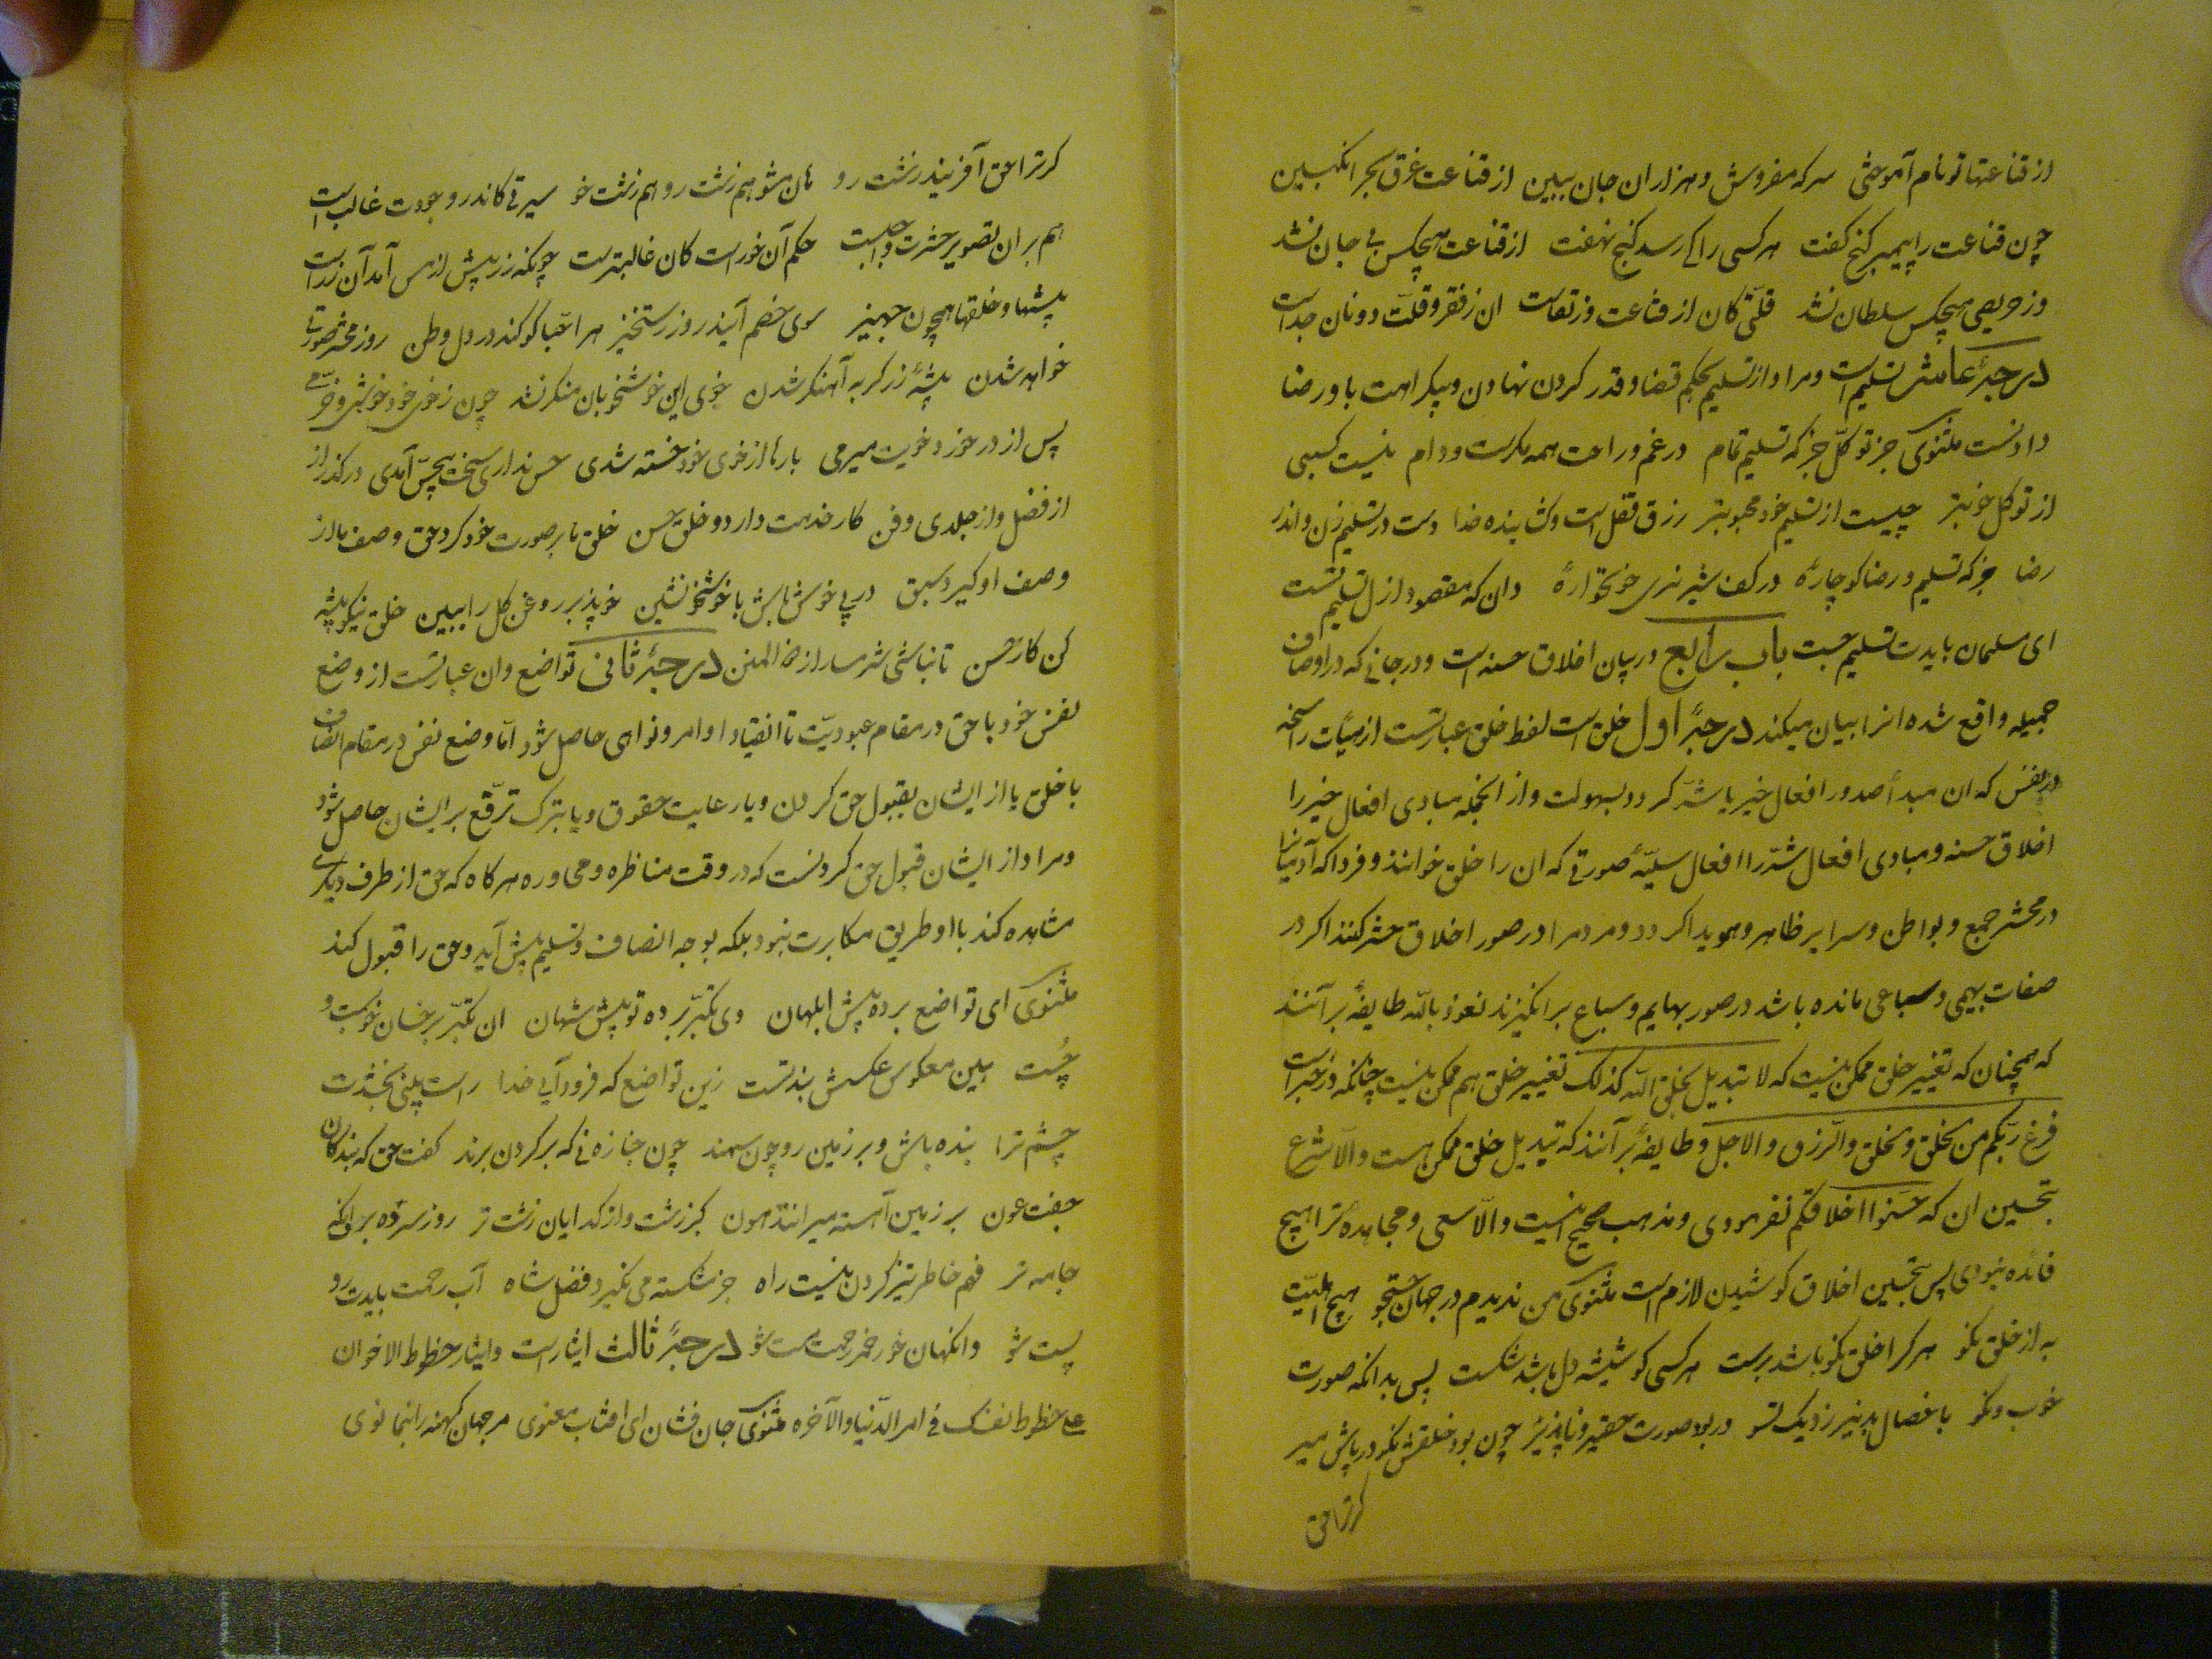 از قناعتها تو نام آموختی سرکه مفروش و هزاران جان ببین از قناعت غرق بحر انگبین
چون قناعت را پیمبر کنج کفت هر کسی را کی رسد کنج نهفت از قناعت هیچکس بی جان نشد
وز حریصی هیچکس سلطان نشد قلّتی کان از قناعت وز تقاست ان ز فقر و قلّت دونان جداست
درجۀ عاشر تسلیم است و مراد از تسلیم بحکم قضا و قدر کردن نهادن و بیکراهت باو رضا
دادنست مثنوی جز توکّل جز که تسلیم تمام در غم و راحت همه مکرست و دام نیست کسبی
از توکل خوبتر چیست از تسلیم خود محبوبتر رزق قفل است وکشاینده خدا دست در تسلیم زن واندر
رضا جز که تسلیم و رضا کو چارۀ در کف شیر نری خونخوارۀ وان که مقصود از ل تسلیم تست
ای مسلمان بایدت تسلیم جست باب رابع در بیان اخلاق حسنه است و درجاتی که در اوصاف
جمیله واقع شده انرا بیان میکند درجۀ اول خلق است لفظ خلق عبارتست از هیأت راسخه
در نفس که ان مبدأ صدور افعال خیر یا شرّ کردد بسهولت و از انجمله مبادی افعال خیر را
اخلاق حسنه و مبادی افعال شرّ را افعال سیّئه صورتی که ان را خلق خوانند و فردا که آدمیانرا
در محشر جمع و بواطن و سرایر ظاهر و هویدا کردد و مردمرا در صور اخلاق حشر کنند اکر در
صفات بهیمی و سباعی مانده باشد در صور بهایم و سباع برانکیزند نعوذ بالله طایفۀ بر آنند
که همچنان که تغییر خلق ممکن نیست که لا تبدیل لخلق الله کذلک تغییر خلق هم ممکن نیست چنانکه در خبر است
فرغ ربّکم من الخلق و الخلق و الرزق و الاجل و طایفۀ بر آنند که تبدیل خلق ممکن هست و الّا شرع
بتحسین ان که حسّنوا اخلاقکم نفرمودی و مذهب صحیح اینست و الّا سعی و مجاهده را هیچ
فائده نبودی پس بتحسین اخلاق کوشیدن لازم است مثنوی من ندیدم در جهان جستجو هیچ اهلیّت
به از خلق نکو هر کرا خلق نکو باشد برست هر کسی کو شیشه دل باشد شکست پس بدانکه صورت
خوب و نکو با خصال بد نیرزد یک تسو ور بود صورت حقیر و ناپذیر چون بود خلقش نکو در پاش میر
کر ترا حق
کر ترا حق آفریند زشت رو هان مشو هم زشت رو هم زشت خو سیرتی کاندر وجودت غالب است
هم بران تصویر حشرت واجبست حکم آن خوراست کان غالبترست چونکه زر بیش از مس آمد آن زر است
پیشها و خلقها همچون جهیز سوی خصم آیند روز رستخیز هر کو کند در دل وطن روز محشر صورتی
خواهد شدن پیشۀ زرکر به آهنکر نشد خوی این خوشخو بان منکر نشد چون ز خوی خود خوشی و خرّمی
پس از در خورد خویت میرمی بارها از خوی خود خسته شدی حس نداری سخت بیحسّ آمدی درکذر از
از فضل و از جلدی و فن کار خدمت دارد و خلق حسن خلق ما بر صورت خود کرد حق وصف ما از
وصف او کیرد سبق در پی خوش باش با خوشخو نشین خو پذیر روغن کل را ببین خلق نیکو پیشه
کن کار حسن تا نباشی شرمسار از درجۀ ثانی تواضع وان عبارتست از وضع
نفس خود با حق در مقام عبودیّت تا انقیاد اوامر و نواهی حاصل شود امّا وضع نفس در مقام انصاف
با خلق یا از ایشان بقبول حق کردن و یا رعایت حقوق و یا بترک ترفّع بر ایشان حاصل شود
و مراد از ایشان قبول حق کردنست که در وقت مناظره و محاوره هر کاه که حق از طرف دیکری
مشاهده کند با او طریق مکابرت نبود بلکه بوجه انصاف و تسلیم پیش آید و حق را قبول کند
مثنوی ای تواضع برده پیش ابلهان وی تکبّر برده تو پیش شهان ان تکبّر بر خسان خوبست و
چُست بین معکوس عکسش بند تست زین تواضع که فرود آیی خدا راست بینی بخشدت
چشم ترا بنده باش و بر زمین رو چون سمند چون جنازه نی که بر کردن برند کفت حق که بندکان
جفت عون بر زمین آهسته میرانند هون کبر زشت و از کدایان زشت تر روز سرد و برف وانکه
جامه تر فهم خاطر تیز کردن نیست راه جز شکسته می نکیرد فضل شاه آب رحمت بایدت رو
پست شو وانکهان خور خمر رحمت مست شو درجۀ ثالث ایثار است و ایثار حظوظ الاخوان
علی حظوظ نفسک فی امر الدّنیا و الآخره مثنوی جان فشان ای افتاب معنوی مر جهان کهنه را بنما نوی